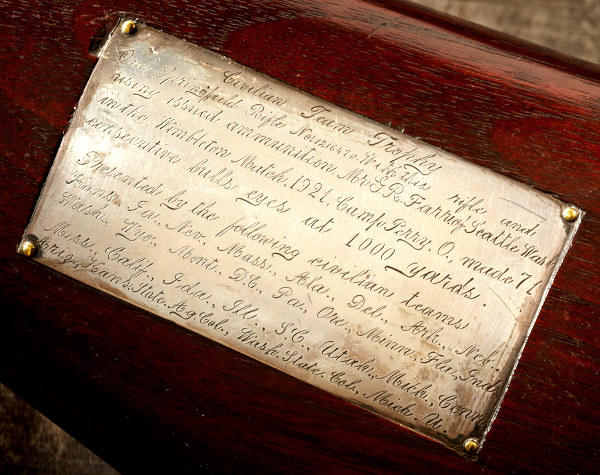 Civilian Team Trophy
One Springfield Rifle No. With this rifle and
using issued ammunition, Mr. G.R. Farr, of Seattle Wash.
in the Wimbleton Match, 1921, Camp Perry, O., made 71
consecutive bulls eyes at 1000 yards.
Presented by the following civilian teams
Kans., Ia., Nev., Mass., Ala., Del., Ark., Neb.,
Wash., Wyo., Mont., D.C., Pa., Ore., Minn., Fla., Ind.,
Miss., Calif., Ida., Ill., S.C., Utah., Mich., Conn.,
Kans. State. Ag. Col., Wash. State. Col., Mich. U.